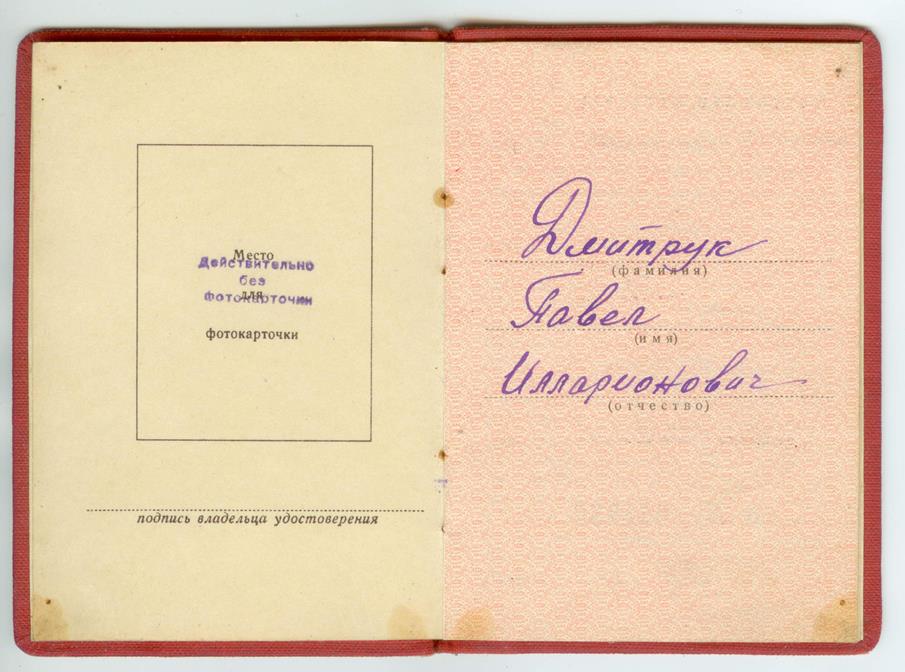 Место
Действительно
без
фотокарточки
для
фотокарточки
подпись владельца удостоверения
Дмитрук
(фамилия)
Павел
(имя)
Илларионович
(отчество)